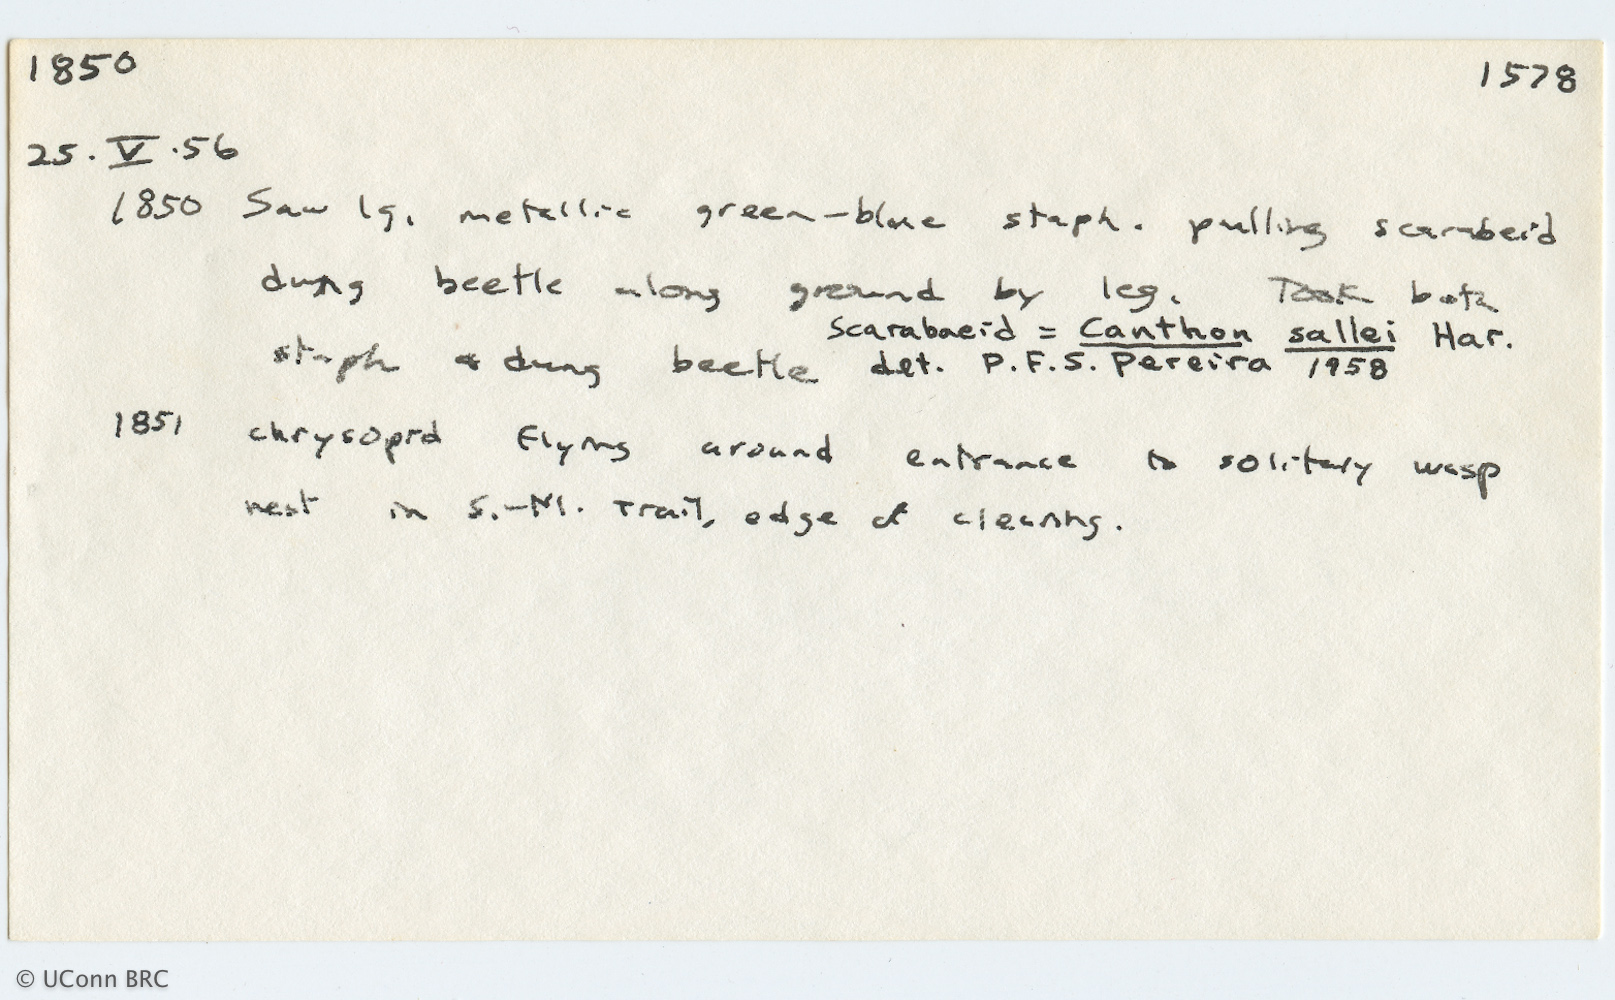 1850 1578
25.V.56
1850 Saw lg. metallic green-blue staph. pulling scarabeid
dung beetle along ground by leg. Took both
Scarabaeid = Canthon sallei Har.
staph & dung beetle det. P.F.S. Pereira 1958
1851 chrysopid flying around entrance to solitary wasp
nest in S.-M. Trail, edge of clearing.
© UConn BRC